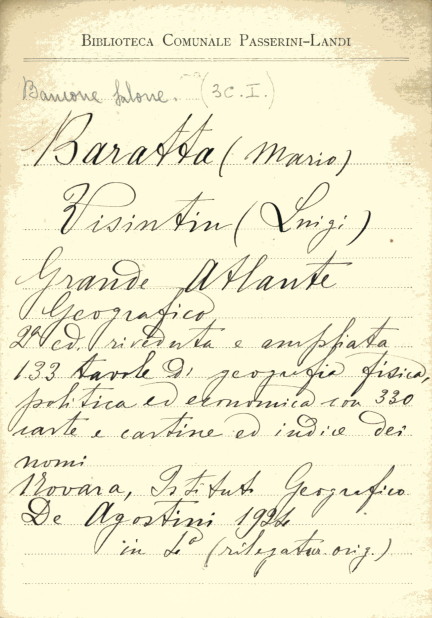 BIBLIOTECA COMUNALE PASSERINI-LANDI
Bancone Salone. (3C.I.)
Baratta (Mario)
Visintin (Luigi)
Grande Atlante
Geografico
2ª ed. riveduta e ampliata
133 tavole di geografia fisica,
politica ed economica con 330
carte e cartine ed indice dei
nomi
Novara, Istituto Geografico
De Agostini 1924
in 4° (rilegatur. orig.)